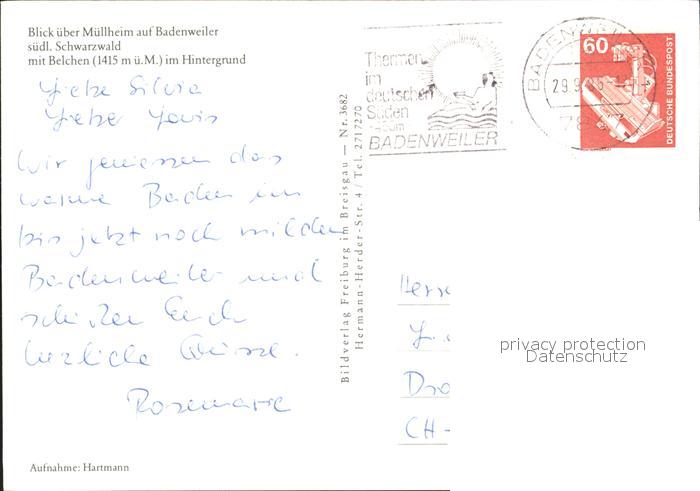 Blick über Müllheim auf Badenweiler
südl. Schwarzwald
mit Belchen (1415 m ü.M.) im Hintergrund
Liebe Silvia
Lieber Louis
Wir geniessen das
warme Baden im
bis jetzt noch milden
Badenweiler und
schicken Euch
herzliche Grüsse.
Rosemarie
Aufnahme: Hartmann
Bildverlag Freiburg im Breisgau — Nr. 3682
Hermann-Herder-Str. 4 / Tel. 2717270
Thermen
im
deutschen
Süden
BADENWEILER
BADENWEILER
29.9.
60
DEUTSCHE BUNDESPOST
Herr
CH-
privacy protection
Datenschutz